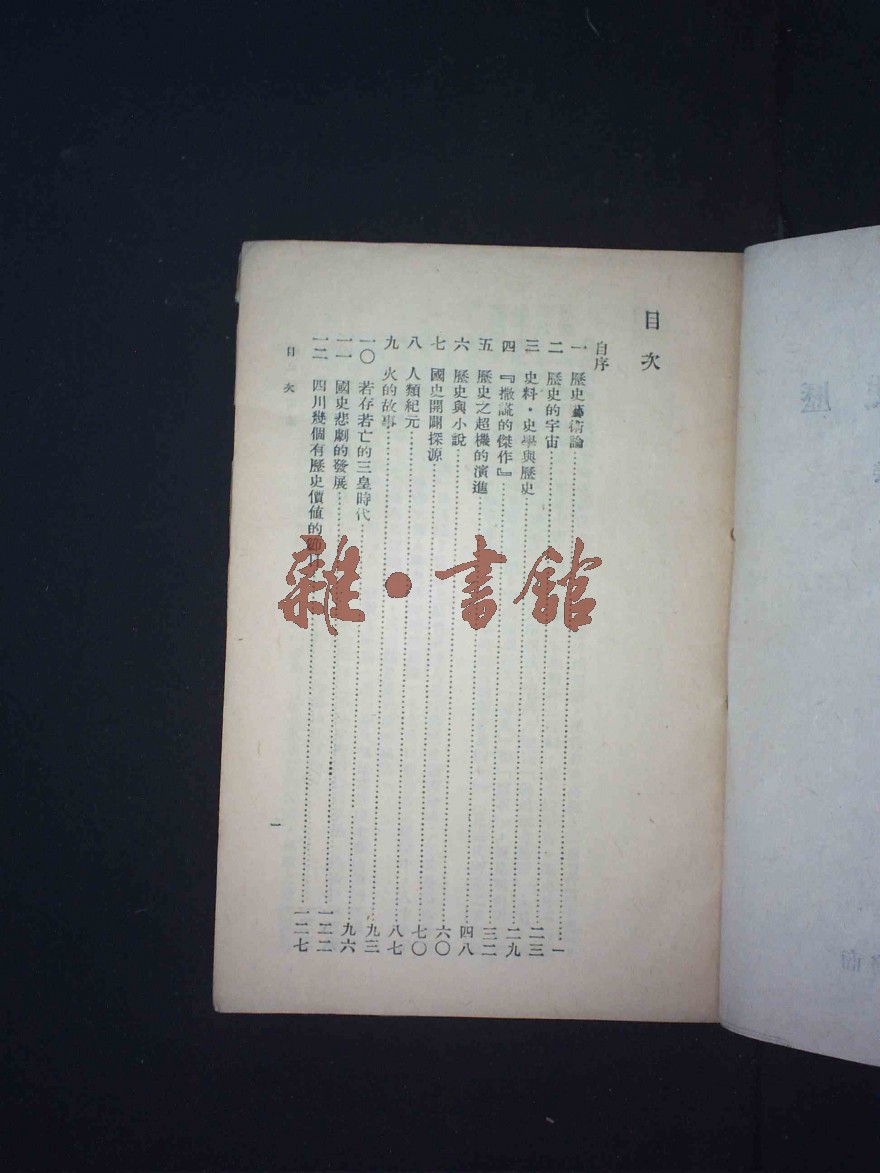 目次
自序
一 歷史藝術論……一
二 歷史的宇宙……二三
三 史料·史學與歷史……二九
四 『撒謊的傑作』……三二
五 歷史之超機的演進……四八
六 歷史與小說……六〇
七 國史開闢探源……七〇
八 人類紀元……八七
九 火的故事……九三
一〇 若存若亡的三皇時代……九六
一一 國史悲劇的發展……一二二
一二 四川幾個有歷史價值的……一二七
目次
一
雜·書館